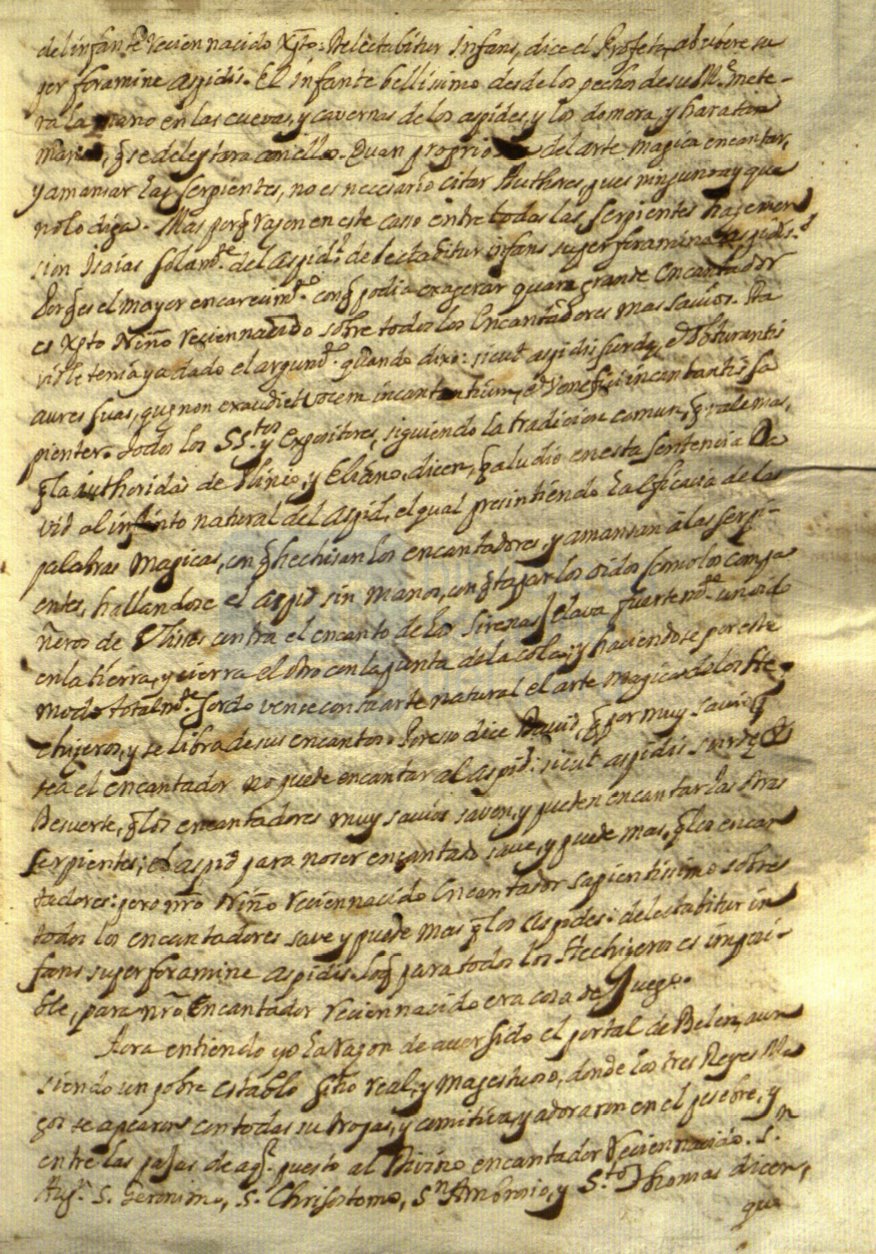 del infante reciennacido Xpto: Delectabitur infans, dice el Profeta, ab ubere su
per foramine aspidis. El infante bellisimo desde los pechos de su Me. mete-
ra la mano en las cuevas, y cavernas de los aspides, y los domara, y hara tan
mansos, q̃ se deleytara con ellos. Quan proprio del arte magica encantar,
y amansar las serpientes, no es necesario citar Authores, pues ninguno ay que
no lo diga. Mas porq̃ rason en este caso entre todas las serpientes hase men
sion Isaias solamte. del aspid: delectabitur infans super foramina aspidis?
Porq̃ es el mayor encarecimto. con q̃ podia exagerar quan grande encantador
es Xpto Niño reciennacido sobre todos los Encantadores mas savios. Da
vid le tenia ya dado el argumto. quando dixo: sicut aspidis surdę, et obturantis
aures suas, quę non exaudiet vocem incantantium, et venefici incantantis sa
pienter. Todos los SS.tos y Expositores, siguiendo la tradicion comun, q̃ vale mas,
q̃ la authoridad de Plinio, y Eliano, dicen, q̃ aludio en esta sentencia Da
vid al instinto natural del Aspid, el qual presintiendo la eficacia de las
palabras magicas, con q̃ hechisan los encantadores, y amansan â las serpi-
entes, hallandose el aspid sin manos, con q̃ tapar los oidos (como los compa
ñeros de Ulises contra el encanto de las Sirenas) clava fuertemte. un oido
en la tierra, y cierra el otro con la punta de la cola; y haciendose por este
modo totalmte. sordo vence con su arte natural el arte magica de los He
chizeros, y se libra de sus encantos. Por eso dice David, q̃ por muy savio q̃
sea el encantador no puede encantar al aspid: sicut aspidis surdę &
Desuerte, q̃ los encantadores muy savios saven, y pueden encantar las otras
serpientes; el aspid para no ser encantado save, y puede mas, q̃ los encan
tadores: pero nr̃o Niño reciennacido Encantador sapientisimo sobre
todos los encantadores save y puede mas q̃ los aspides: delectabitur in
fans super foramine aspidis. Lo q̃ para todos los Hechizeros es imposi-
ble, para nr̃o Encantador reciennacido era cosa de Juego.
Aora entiendo yo la rason de aver sido el portal de Belen, aun
siendo un pobre establo sitio real, y magestuoso, donde los tres Reyes Ma
gos se apearon con todas su tropas, y comitiva, y adoraron en el pesebre, y
entre las pajas de aql. puesto al Divino encantador reciennacido. S.n
Augn. S. Geronimo, S. Chrisostomo, S.n Ambrosio, y S.to Thomas dicen,
que